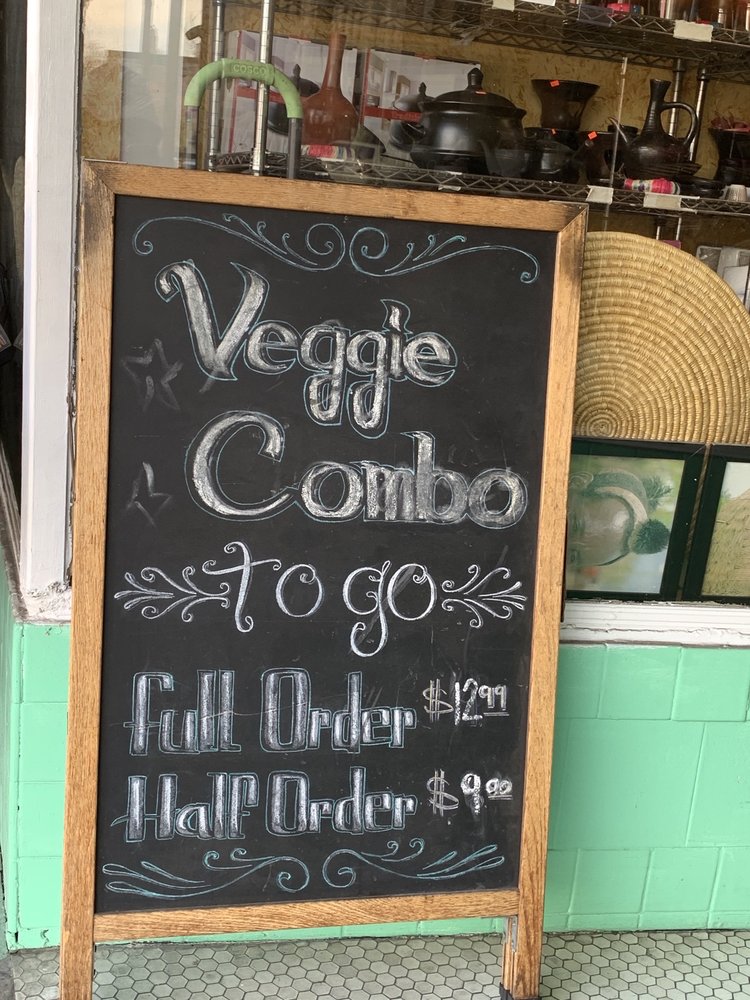 COSCO
Veggie
Combo
to go
Full Order $12.99
Half Order $9.00